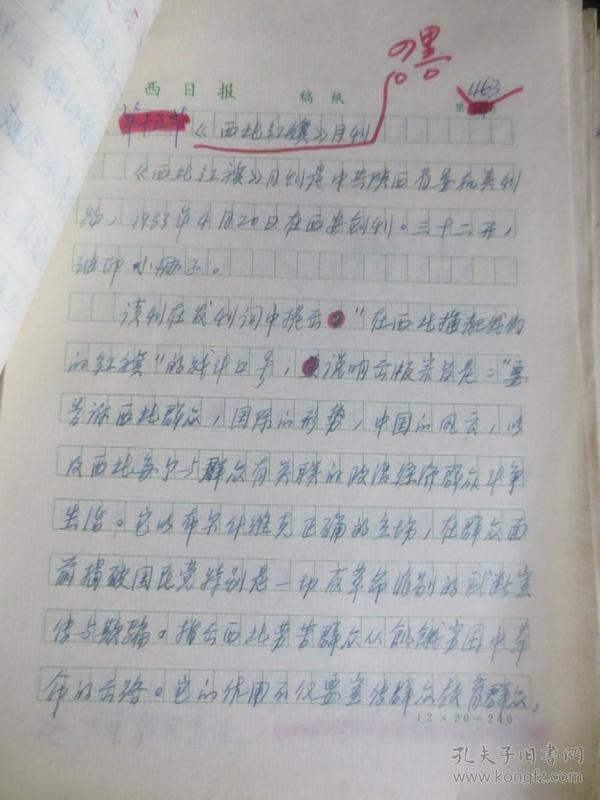 黑
西日报 稿纸 第463
《西北红旗》月刊
《西北红旗》月刊是中共陕西省委机关刊
物，1933年4月20日在西安创刊。三十二开，
油印小册子。
该刊在发刊词中提出"在西北插起我们
的红旗"的战斗口号，说明出版宗旨是："要
告诉西北群众，国际的形势，中国的风云，以
及西北每个与群众有关联的政治经济群众斗争
生活。它以布尔什维克正确的立场，在群众面
前揭破国民党特别是一切反革命派别的武断宣
传与欺骗。指出西北劳苦群众从饥饿穷困中革
命的出路。它的作用不仅要宣传群众教育群众，
12×20=240
孔夫子旧书网
www.kongfz.com